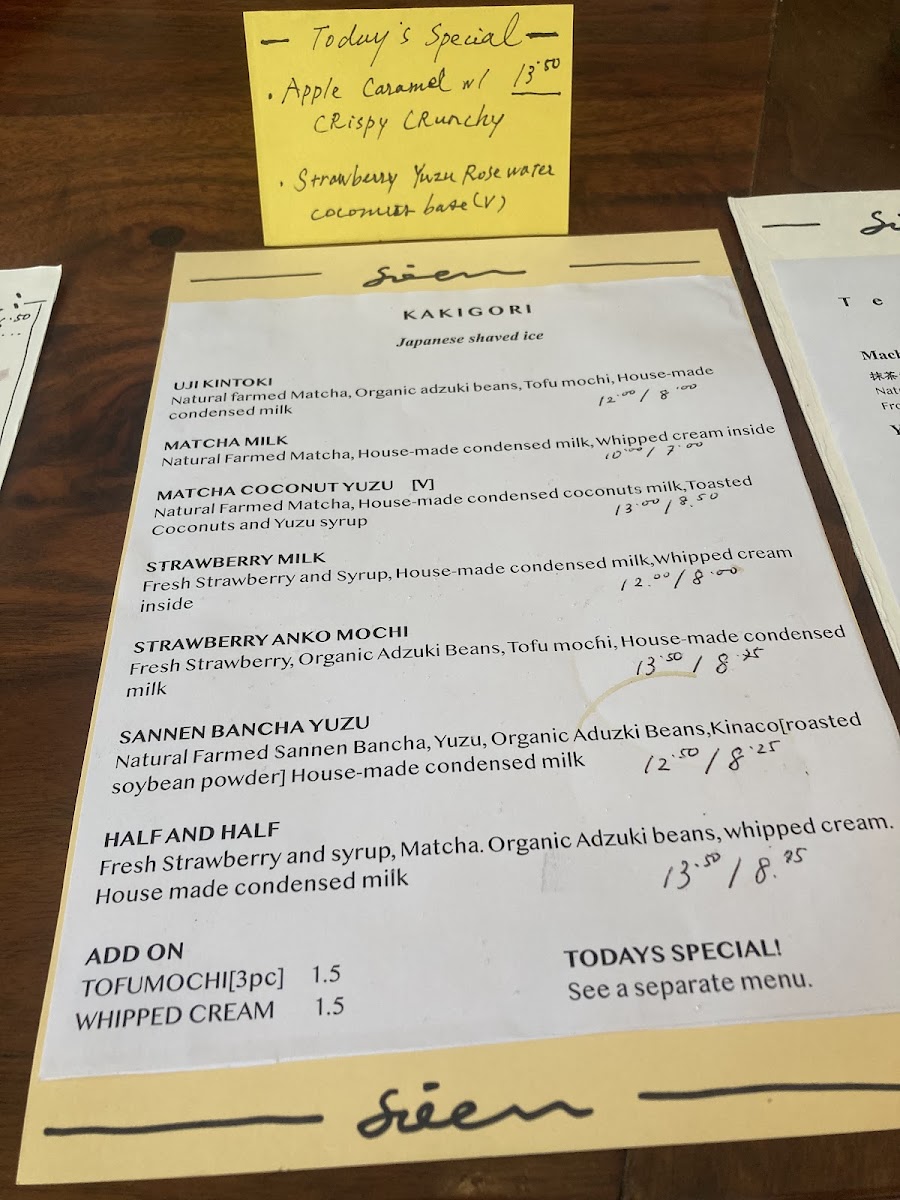 Today's Special
· Apple Caramel w/ 13.50
CRispy CRunchy
· Strawberry Yuzu Rose water
coconut base (V)
Sieen
KAKIGORI
Japanese shaved ice
UJI KINTOKI
Natural farmed Matcha, Organic adzuki beans, Tofu mochi, House-made
condensed milk 12.00 / 8.00
MATCHA MILK
Natural Farmed Matcha, House-made condensed milk, Whipped cream inside
10.00 / 7.00
MATCHA COCONUT YUZU [V]
Natural Farmed Matcha, House-made condensed coconuts milk,Toasted
Coconuts and Yuzu syrup 13.00 / 8.50
STRAWBERRY MILK
Fresh Strawberry and Syrup, House-made condensed milk,Whipped cream
inside 12.00 / 8.00
STRAWBERRY ANKO MOCHI
Fresh Strawberry, Organic Adzuki Beans, Tofu mochi, House-made condensed
milk 13.50 / 8.75
SANNEN BANCHA YUZU
Natural Farmed Sannen Bancha, Yuzu, Organic Aduzki Beans,Kinaco[roasted
soybean powder] House-made condensed milk 12.50 / 8.25
HALF AND HALF
Fresh Strawberry and syrup, Matcha. Organic Adzuki beans, whipped cream.
House made condensed milk 13.50 / 8.75
ADD ON
TOFUMOCHI[3pc] 1.5
WHIPPED CREAM 1.5
TODAYS SPECIAL!
See a separate menu.
Sieen
T e
抹茶